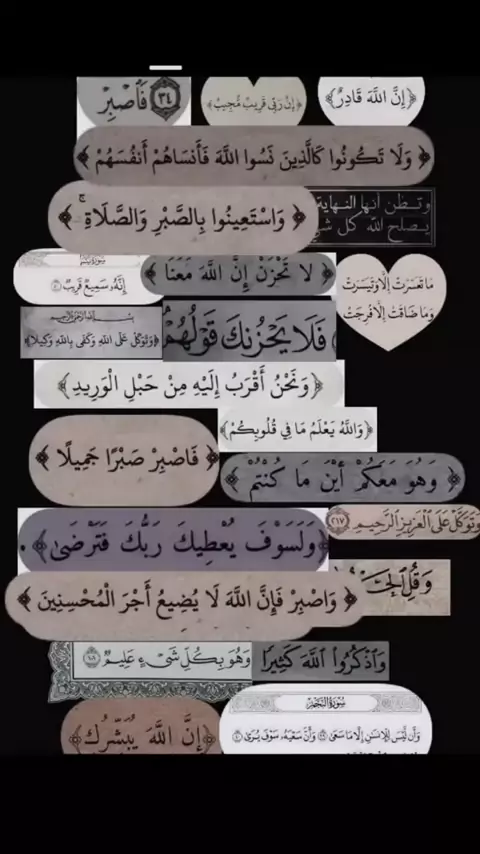 فَاصْبِرْ ٣٤
﴿إِنَّ رَبِّي قَرِيبٌ مُّجِيبٌ﴾
﴿إِنَّ اللَّهَ قَادِرٌ﴾
﴿وَلَا تَكُونُوا كَالَّذِينَ نَسُوا اللَّهَ فَأَنسَاهُمْ أَنفُسَهُمْ﴾
﴿وَاسْتَعِينُوا بِالصَّبْرِ وَالصَّلَاةِ ۚ﴾
وتظن أنها النهاية
يصلح الله كل
إِنَّهُ سَمِيعٌ قَرِيبٌ
﴿لَا تَحْزَنْ إِنَّ اللَّهَ مَعَنَا﴾
مَا تَعَسَّرَتْ إِلَّا وَتَيَسَّرَتْ
وَمَا ضَاقَتْ إِلَّا فُرِجَتْ
﴿وَتَوَكَّلْ عَلَى اللَّهِ وَكَفَى بِاللَّهِ وَكِيلًا﴾
فَلَا يَحْزُنكَ قَوْلُهُمْ
﴿وَنَحْنُ أَقْرَبُ إِلَيْهِ مِنْ حَبْلِ الْوَرِيدِ﴾
﴿وَاللَّهُ يَعْلَمُ مَا فِي قُلُوبِكُمْ﴾
﴿فَاصْبِرْ صَبْرًا جَمِيلًا﴾
﴿وَهُوَ مَعَكُمْ أَيْنَ مَا كُنْتُمْ﴾
وَتَوَكَّلْ عَلَى الْعَزِيزِ الرَّحِيمِ ٢١٧
﴿وَلَسَوْفَ يُعْطِيكَ رَبُّكَ فَتَرْضَىٰ﴾.
وَقُلِ
﴿وَاصْبِرْ فَإِنَّ اللَّهَ لَا يُضِيعُ أَجْرَ الْمُحْسِنِينَ﴾
وَاذْكُرُوا اللَّهَ كَثِيرًا
وَهُوَ بِكُلِّ شَيْءٍ عَلِيمٌ
سُورَةُ النَّجْمِ
وَأَن لَّيْسَ لِلْإِنسَانِ إِلَّا مَا سَعَىٰ ٣٩ وَأَنَّ سَعْيَهُ سَوْفَ يُرَىٰ ٤٠
﴿إِنَّ اللَّهَ يُبَشِّرُكِ﴾